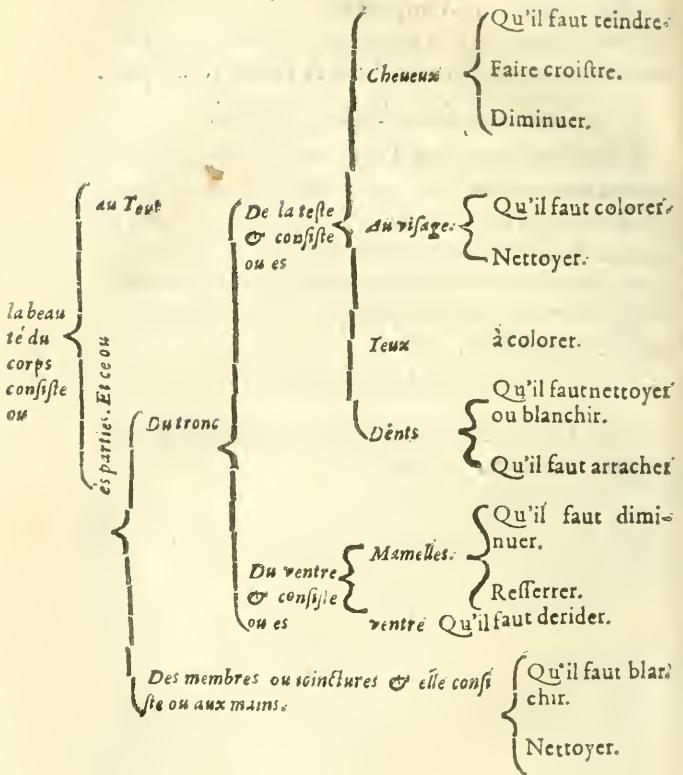 la beau
té du
corps
consiſte
ou
au Tout
és parties. Et ce ou
Du tronc
De la teſte
& conſiſte
ou es
Cheueux
Qu'il faut teindre.
Faire croiſtre.
Diminuer.
Au viſage.
Qu'il faut colorer.
Nettoyer.
Yeux
à colorer.
Dênts
Qu'il faut nettoyer
ou blanchir.
Qu'il faut arracher
Du ventre
& conſiſte
ou es
Mamelles.
Qu'il faut dimi-
nuer.
Reſſerrer.
ventre Qu'il faut derider.
Des membres ou ioinctures & elle conſi
ſte ou aux mains.
Qu'il faut blan
chir.
Nettoyer.